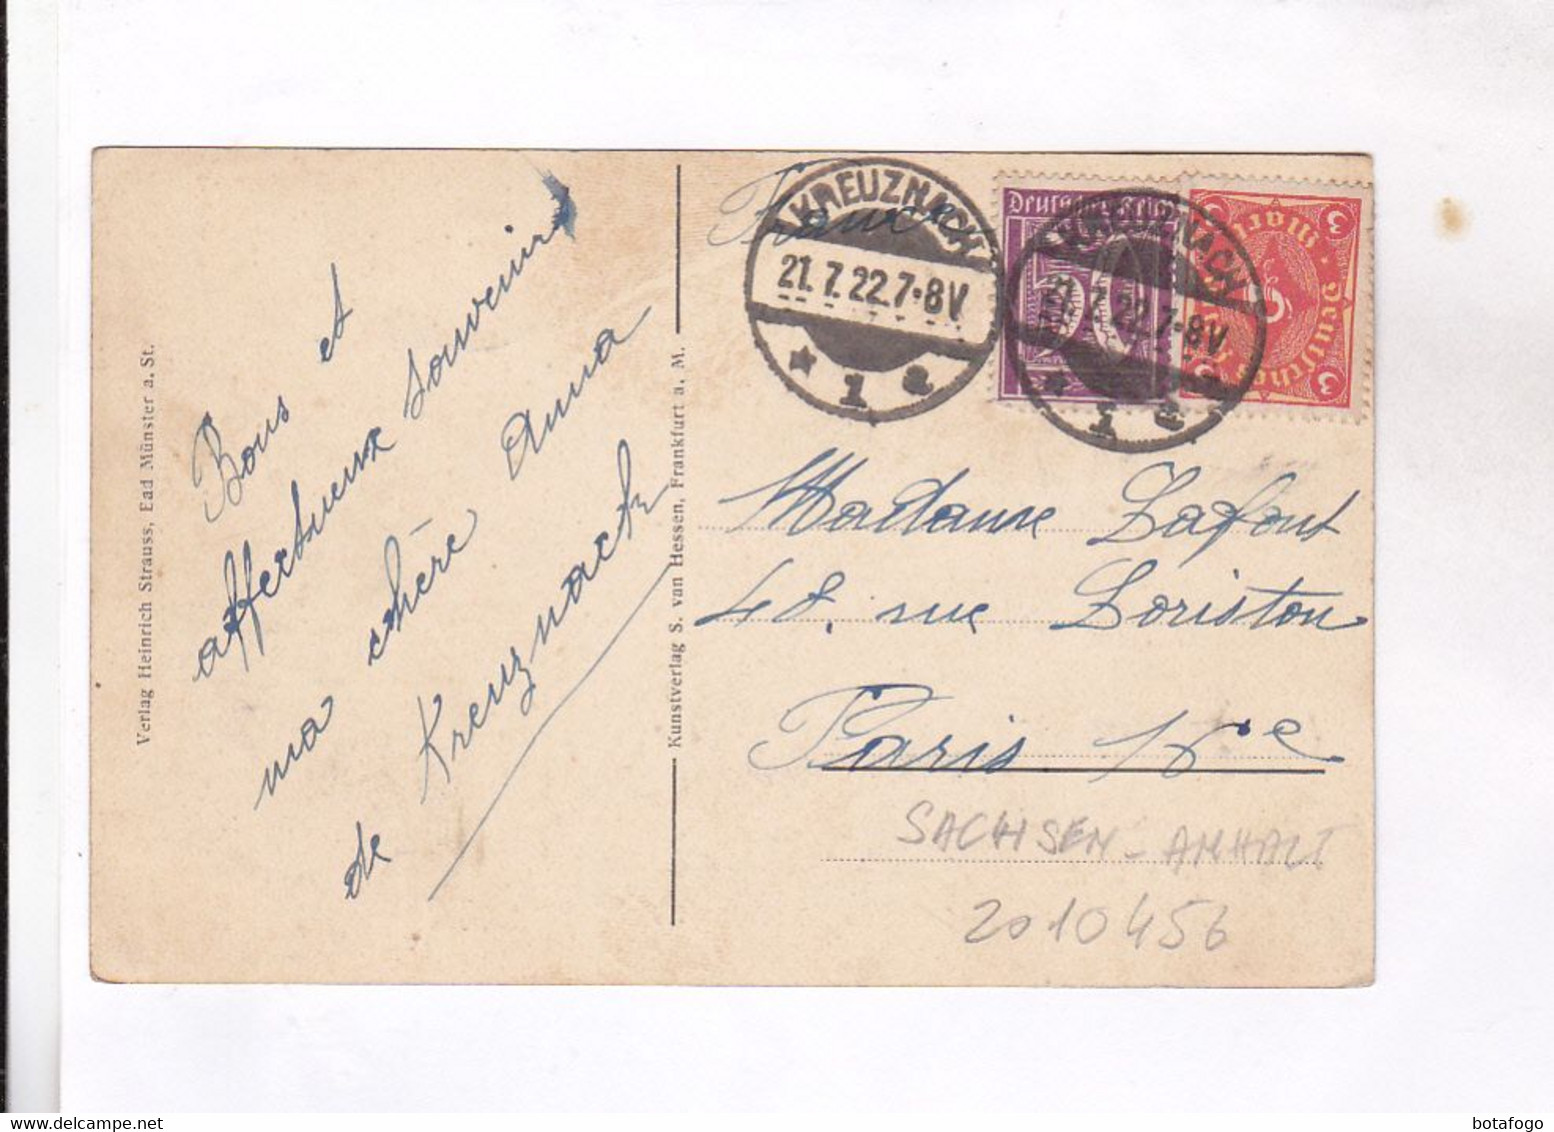 Verlag Heinrich Strauss, Bad Münster a. St.
Bons et
affectueux souvenirs
ma chère Anna
de Kreuznach
Kunstverlag S. van Hessen, Frankfurt a. M.
France
KREUZNACH
21.7.22.7-8V
* 1 a
Deutsches Reich
50
KREUZNACH
21.7.22.7-8V
* 1 a
Deutsches Reich
3 Mark 3
Madame Lafont
48. rue Loriston
Paris 16e
SACHSEN-ANHALT
2010456
www.delcampe.net
botafogo